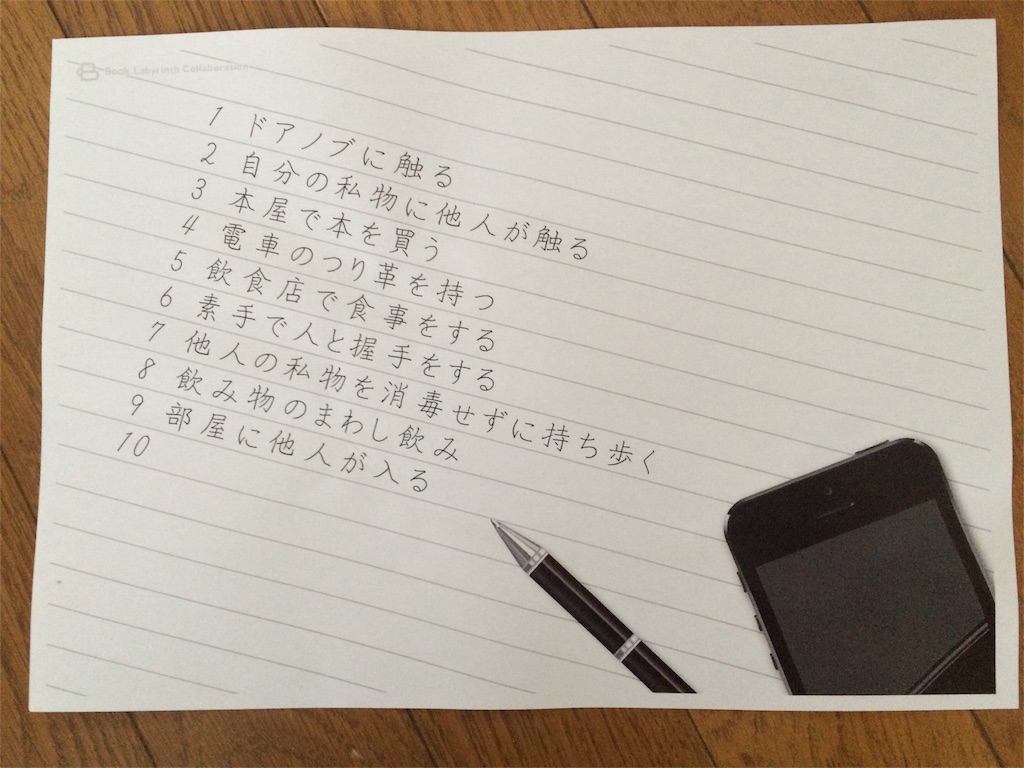 Book Labyrinth Collaboration
1 ドアノブに触る
2 自分の私物に他人が触る
3 本屋で本を買う
4 電車のつり革を持つ
5 飲食店で食事をする
6 素手で人と握手をする
7 他人の私物を消毒せずに持ち歩く
8 飲み物のまわし飲み
9 部屋に他人が入る
10